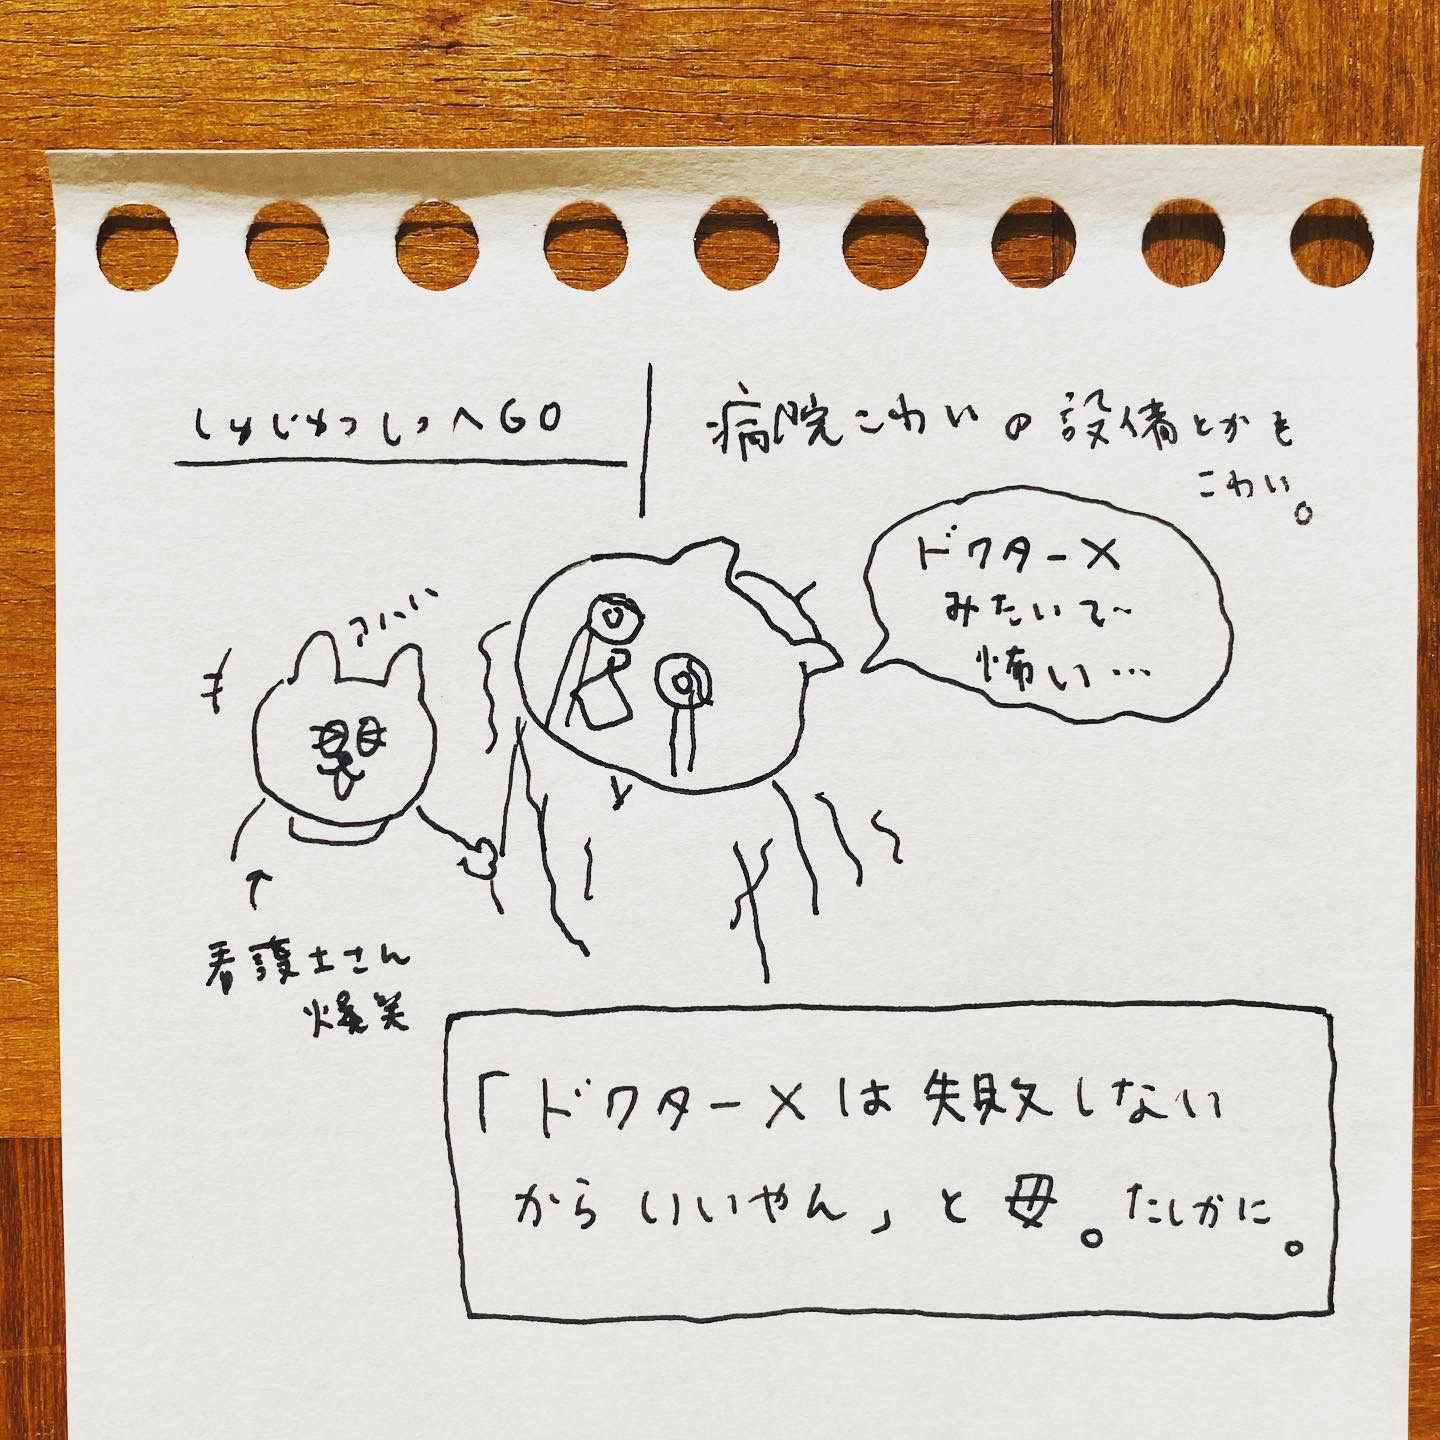 しゅじゅつしつへGO
病院こわいの設備とかも
こわい。
ドクターX
みたいで〜
怖い…
アハハハ
看護士さん
爆笑
「ドクターXは失敗しない
からいいやん」と母。たしかに。